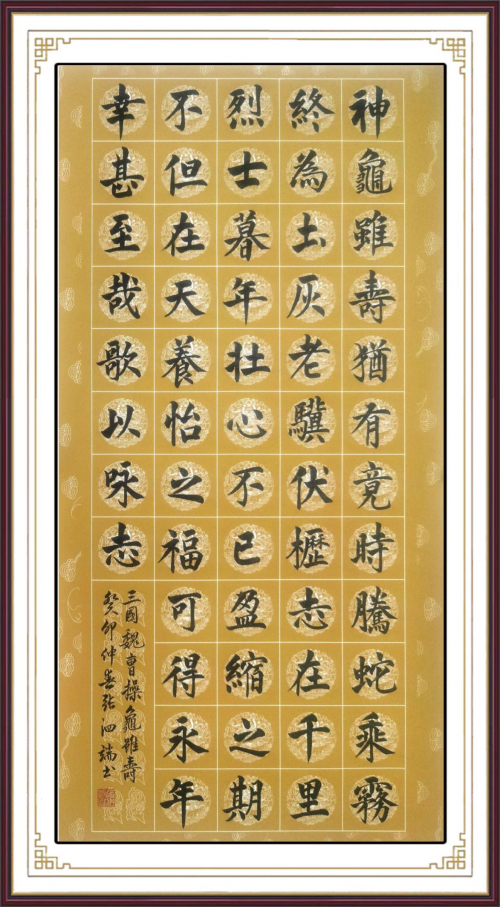 神龜雖壽猶有竟時騰蛇乘霧
終為土灰老驥伏櫪志在千里
烈士暮年壯心不已盈縮之期
不但在天養怡之福可得永年
幸甚至哉歌以咏志
三國魏曹操龜雖壽
癸卯仲春张泗端书